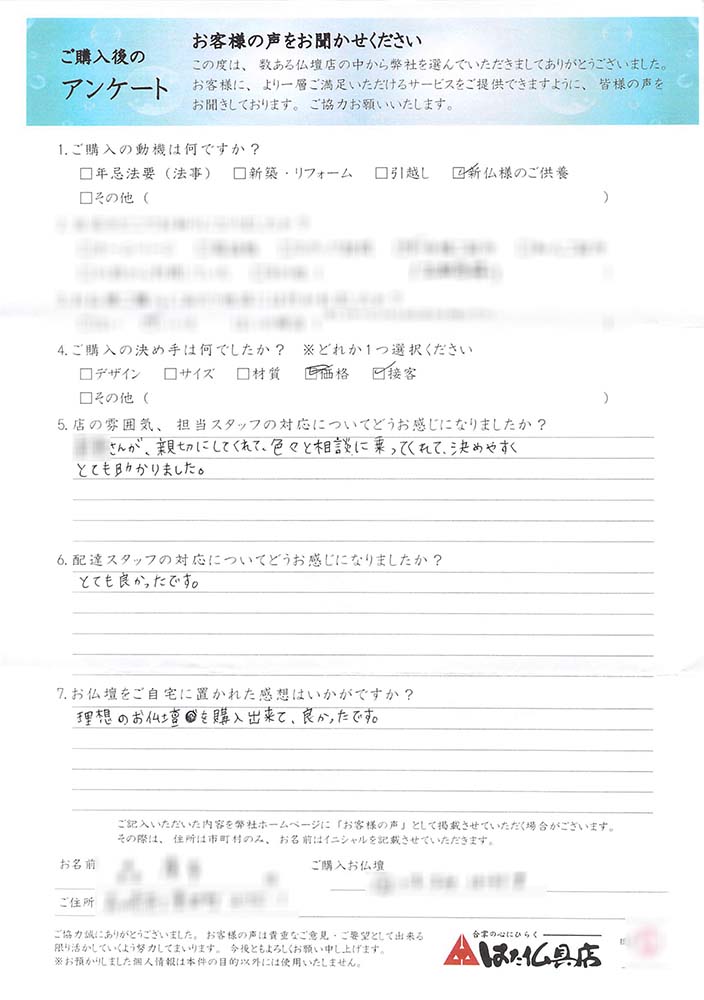 ご購入後の
アンケート
お客様の声をお聞かせください
この度は、数ある仏壇店の中から弊社を選んでいただきましてありがとうございました。
お客様に、より一層ご満足いただけるサービスをご提供できますように、皆様の声を
お聞きしております。ご協力お願いいたします。
1.ご購入の動機は何ですか？
□年忌法要（法事） □新築・リフォーム □引越し ☑新仏様のご供養
□その他（ ）
4.ご購入の決め手は何でしたか？ ※どれか1つ選択ください
□デザイン □サイズ □材質 ☑価格 ☑接客
□その他（ ）
5.店の雰囲気、担当スタッフの対応についてどうお感じになりましたか？
さんが、親切にしてくれて、色々と相談に乗ってくれて、決めやすく
とても助かりました。
6.配達スタッフの対応についてどうお感じになりましたか？
とても良かったです。
7.お仏壇をご自宅に置かれた感想はいかがですか？
理想のお仏壇を購入出来て、良かったです。
ご記入いただいた内容を弊社ホームページに「お客様の声」として掲載させていただく場合がございます。
その際は、住所は市町村のみ、お名前はイニシャルを記載させていただきます。
お名前 ご購入お仏壇
ご住所
ご協力誠にありがとうございました。お客様の声は貴重なご意見・ご要望として出来る
限り活かしていくよう努力してまいります。今後ともよろしくお願い申し上げます。
※お預かりしました個人情報は本件の目的以外には使用いたしません。
合掌の心にひらく
はた仏具店